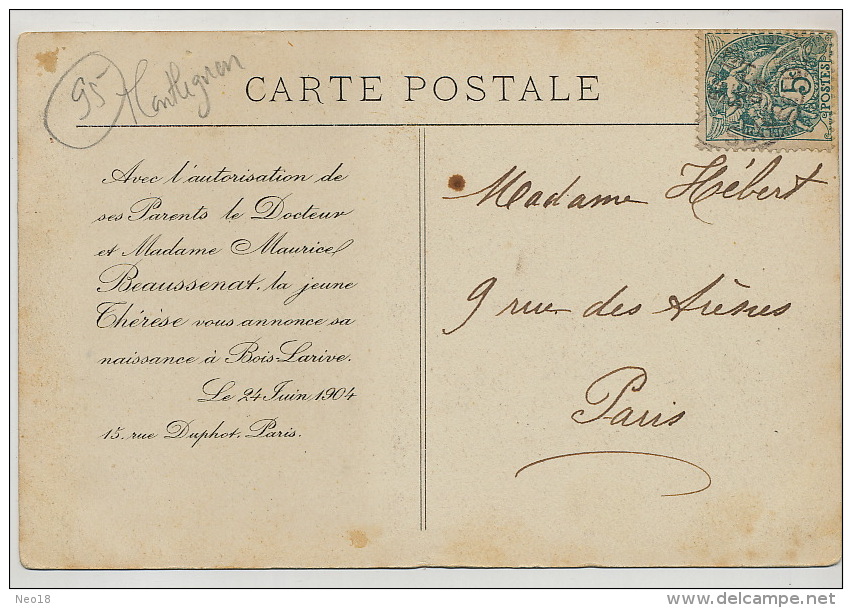 95 Montlignon
CARTE POSTALE
5c
POSTES
Avec l'autorisation de
ses Parents le Docteur
et Madame Maurice
Beaussenat, la jeune
Thérèse vous annonce sa
naissance à Bois-Larive.
Le 24 Juin 1904
15, rue Duphot, Paris.
Madame Hébert
9 rue des Arènes
Paris
Neo18
www.delcampe.net